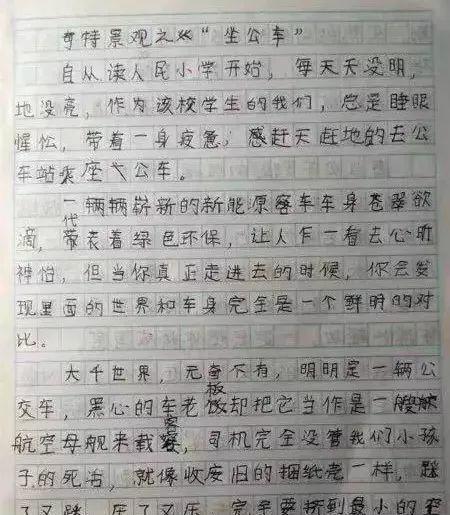 奇特景观之"坐公车"
自从读人民小学开始，每天天没明，
地没亮，作为该校学生的我们，总是睡眼
惺忪，带着一身疲惫，感赶天赶地的去公
车站乘座公车。
一辆辆崭新的新能原客车车身苍翠欲
滴，代表着绿色环保，让人乍一看去心旷
神怡，但当你真正走进去的时候，你会发
现里面的世界和车身完全是一个鲜明的对
比。
大千世界，无奇不有，明明是一辆公
交车，黑心的车老板却把它当作是一艘
航空母舰来载客，司机完全没管我们小孩
子的死活，就像收废旧的捆纸壳一样，踩
了又踩，压了又压，完全要挤到最小的空